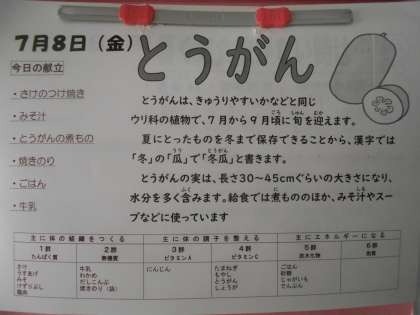 7月8日（金）
とうがん
今日の献立
・さけのつけ焼き
・みそ汁
・とうがんの煮もの
・焼きのり
・ごはん
・牛乳
とうがんは、きゅうりやすいかなどと同じ
ウリ科の植物で、7月から9月頃に旬を迎えます。
夏にとったものを冬まで保存できることから、漢字では
「冬」の「瓜」で「冬瓜」と書きます。
とうがんの実は、長さ30～45cmぐらいの大きさになり、
水分を多く含みます。給食では煮もののほか、みそ汁やスー
プなどに使っています
主に体の組織をつくる 主に体の調子を整える 主にエネルギーになる
1群 2群 3群 4群 5群 6群
たんぱく質 無機質 ビタミンA ビタミンC 炭水化物 脂質
さけ 牛乳 にんじん たまねぎ ごはん
うすあげ わかめ もやし 砂糖
みそ だしこんぶ とうがん じゃがいも
けずりぶし 焼きのり（袋） しょうが でんぷん
鶏肉